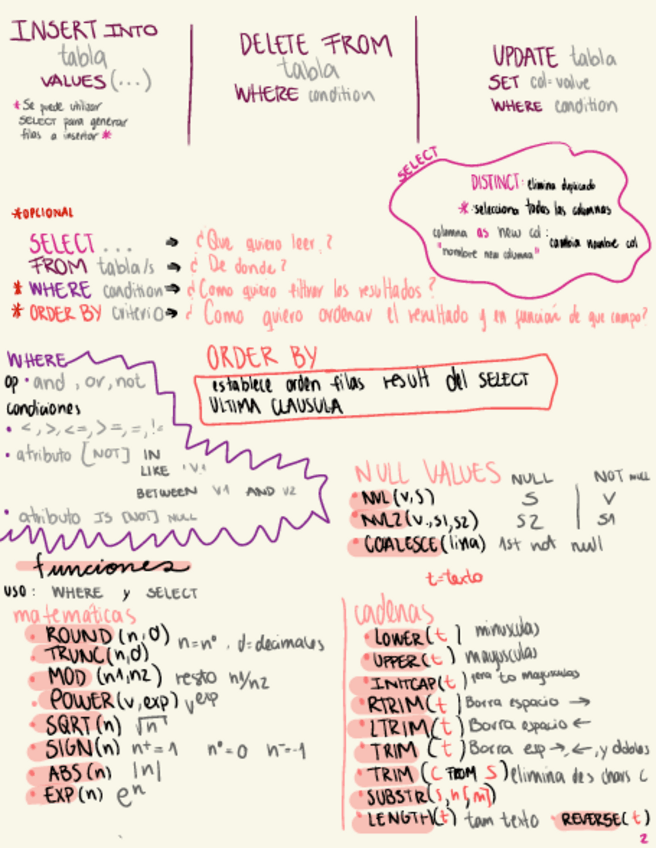 INSERT INTO
tabla
VALUES (...)
* Se puede utilizar
SELECT para generar
filas a insertar *
DELETE FROM
tabla
WHERE condition
UPDATE tabla
SET col=value
WHERE condition
SELECT
DISTINCT: elimina duplicado
* selecciona todas las columnas
columna as new col: cambia nombre col
"nombre new columna"
*OPCIONAL
SELECT ... → ¿Que quiero leer?
FROM tabla/s → ¿De donde?
* WHERE condition → ¿Como quiero filtrar los resultados?
* ORDER BY criterio → ¿Como quiero ordenar el resultado y en funcion de que campo?
WHERE
op · and, or, not
condiciones
• <, >, <=, >=, =, !=
• atributo [NOT] IN
LIKE '%'
BETWEEN V1 AND V2
• atributo IS [NOT] NULL
ORDER BY
establece orden filas result del SELECT
ULTIMA CLAUSULA
NULL VALUES NULL NOT NULL
• NVL(v,s) S V
• NVL2(v,s1,s2) S2 S1
• COALESCE(lista) 1st not null
funciones
USO: WHERE y SELECT
t=texto
matemáticas
• ROUND(n,d)
• TRUNC(n,d) n=nº, d=decimales
• MOD(n1,n2) resto n1/n2
• POWER(v,exp) v^exp
• SQRT(n) √n
• SIGN(n) n+=1 nº=0 n-=-1
• ABS(n) |n|
• EXP(n) e^n
cadenas
• LOWER(t) minusculas
• UPPER(t) mayusculas
• INITCAP(t) 1era to mayusculas
• RTRIM(t) Borra espacio →
• LTRIM(t) Borra espacio ←
• TRIM(t) Borra esp →, ←, y dobles
• TRIM(C FROM S) elimina des chars c
• SUBSTR(s,n[,m])
• LENGTH(t) tam texto • REVERSE(t)
2